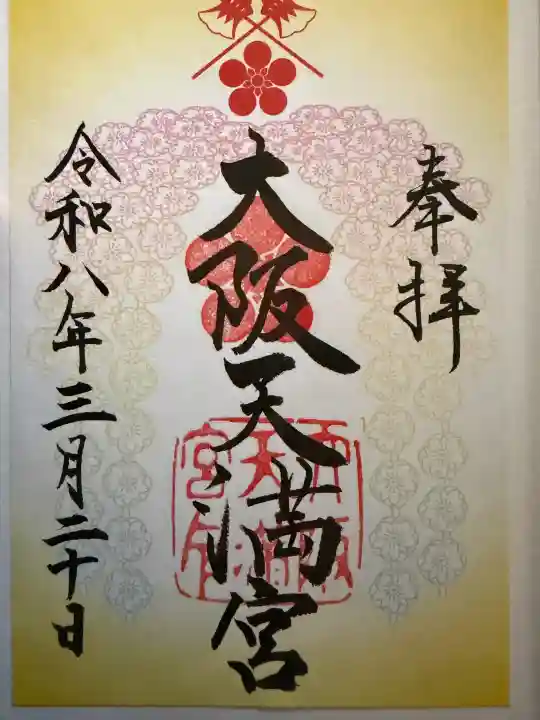 奉拝
大阪天満宮
令和八年三月二十日